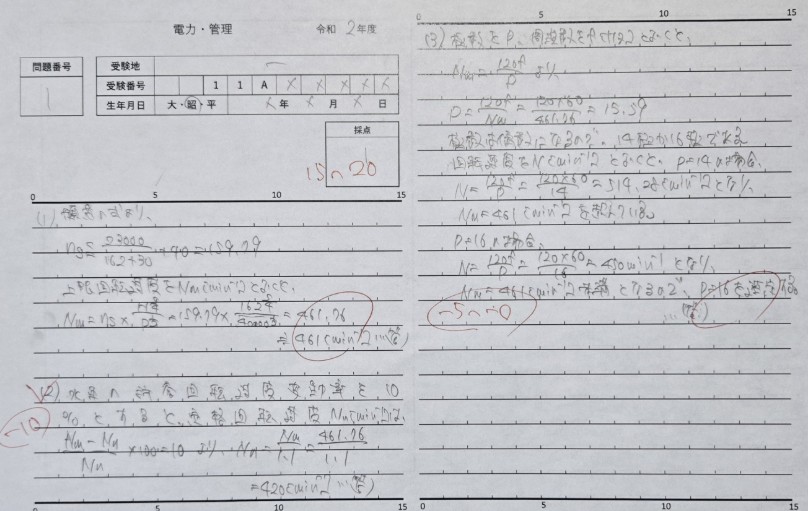 電力・管理
令和 2年度
問題番号
1
受験地
受験番号 1 1 A X X X X X
生年月日 大・昭・平 X年 X月 X日
採点
15〜20
0 5 10 15
(1) 題意の式より、
ns≦ 23000/(162+30) +40=159.79
上限回転速度をNm[min⁻¹]とおくと、
=461.76
≒461[min⁻¹]…(答)
(2) 水車の許容回転速度変動率を10
%とすると、定格回転速度Nn[min⁻¹]は、
-10
(Nm-Nn)/Nn ×100=10 より、Nn= Nm/1.1 = 461.76/1.1
=420[min⁻¹]…(答)
0 5 10 15
0 5 10 15
(3) 極数をP、周波数をf[Hz]とおくと、
Nm= 120f/P より
P= 120f/Nm = 120×60/461.76 = 15.59
極数は偶数になるので、14極か16極である
回転速度をN[min⁻¹]とおくと、P=14の場合、
N= 120f/P = 120×60/14 =514.28[min⁻¹]となり、
Nm=461[min⁻¹]を超えている。
P=16の場合、
N= 120f/P = 120×60/16 =450min⁻¹となり、
Nm=461[min⁻¹]未満となるので、P=16を選定する。
-5〜-10
…(答)
0 5 10 15